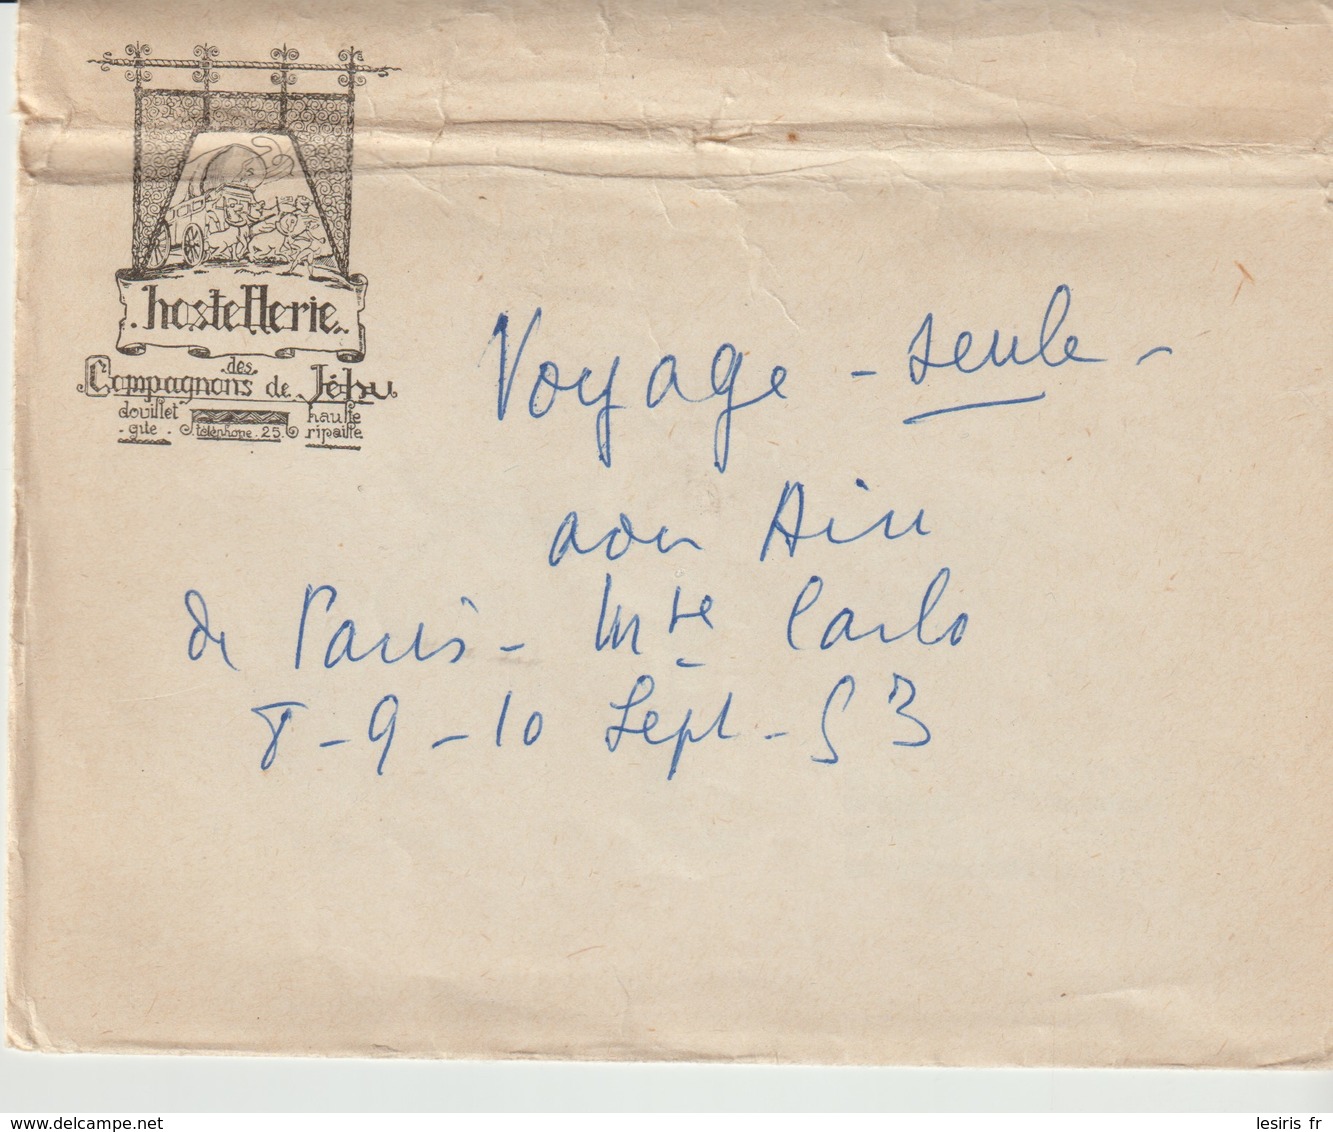 hostellerie
des
Compagnons de Jéhu
douillet
gite
téléphone. 25.
haulte
ripaille
Voyage - seule -
avec
de Paris - Mte Carlo
8 - 9 - 10 Sept - 53
www.delcampe.net
lesiris fr